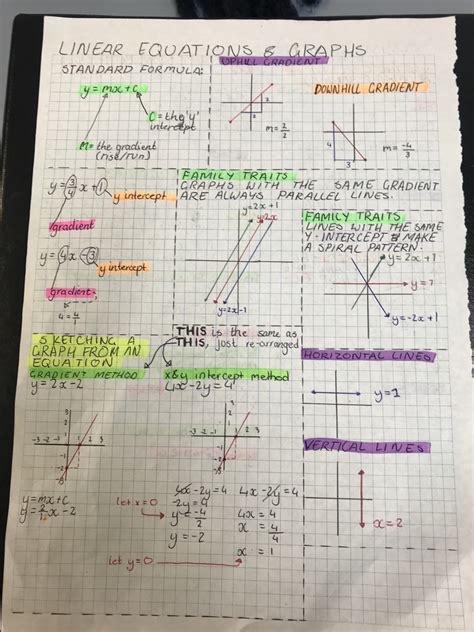 LINEAR EQUATIONS & GRAPHS
STANDARD FORMULA:
y = mx + c
C = the 'y'
intercept
M = the gradient
(rise/run)
UPHILL GRADIENT
2
2
m = 2/2
DOWNHILL GRADIENT
4
3
m = -4/3
y = 3/4 x + 1
y intercept
gradient
y = 4x - 3
y intercept
gradient
4 = 4/1
FAMILY TRAITS
GRAPHS WITH THE SAME GRADIENT
ARE ALWAYS PARALLEL LINES.
y=2x+1
y=2x
y=2x-1
FAMILY TRAITS
LINES WITH THE SAME
Y-INTERCEPT & MAKE
A SPIRAL PATTERN.
y = 2x + 1
y = 1
y = -2x + 1
SKETCHING A
GRAPH FROM AN
EQUATION
GRADIENT METHOD
y = 2x - 2
3
2
1
-3 -2 -1 1 2 3
y = mx + c
y = 2/1 x - 2
THIS is the same as
THIS, just re-arranged
x&y intercept method
4x - 2y = 4
3
2
1
-3 -2 -1 1 2 3
let x = 0
4x - 2y = 4
-2y = 4
y = -4/2
y = -2
4x - 2y = 4
4x = 4
x = 4/4
x = 1
let y = 0
HORIZONTAL LINES
y = 1
VERTICAL LINES
x = 2